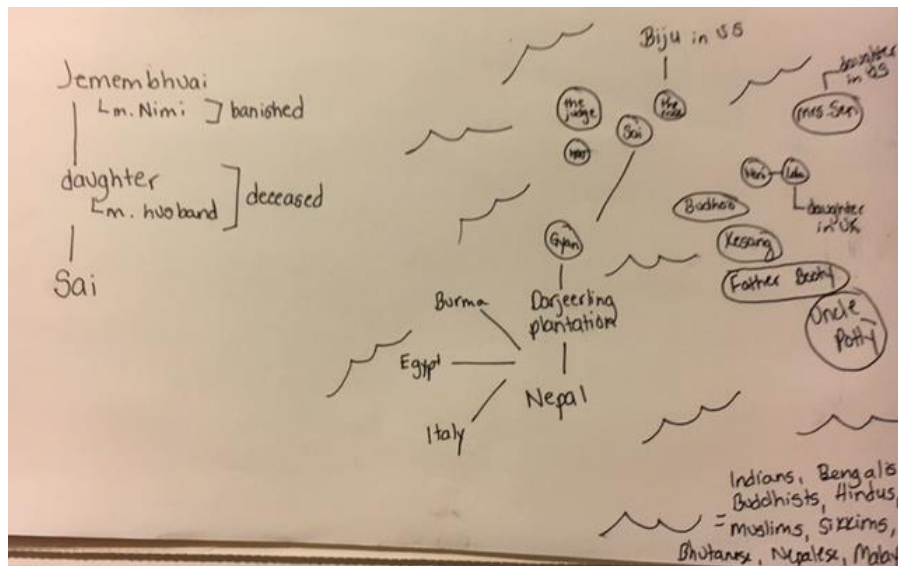 Jemembhuai
m. Nimi ] banished
daughter
m. husband ] deceased
Sai
Biju in US
the judge
the cook
Sai
daughter in US
mrs. Sen
Noni
Lola
daughter in UK
Budhoo
Kesang
Father Booty
Uncle Potty
Gyan
Darjeerling
plantation
Burma
Egypt
Italy
Nepal
Indians, Bengalis
Buddhists, Hindus,
= muslims, Sikkims,
Bhutanese, Nepalese, Malay